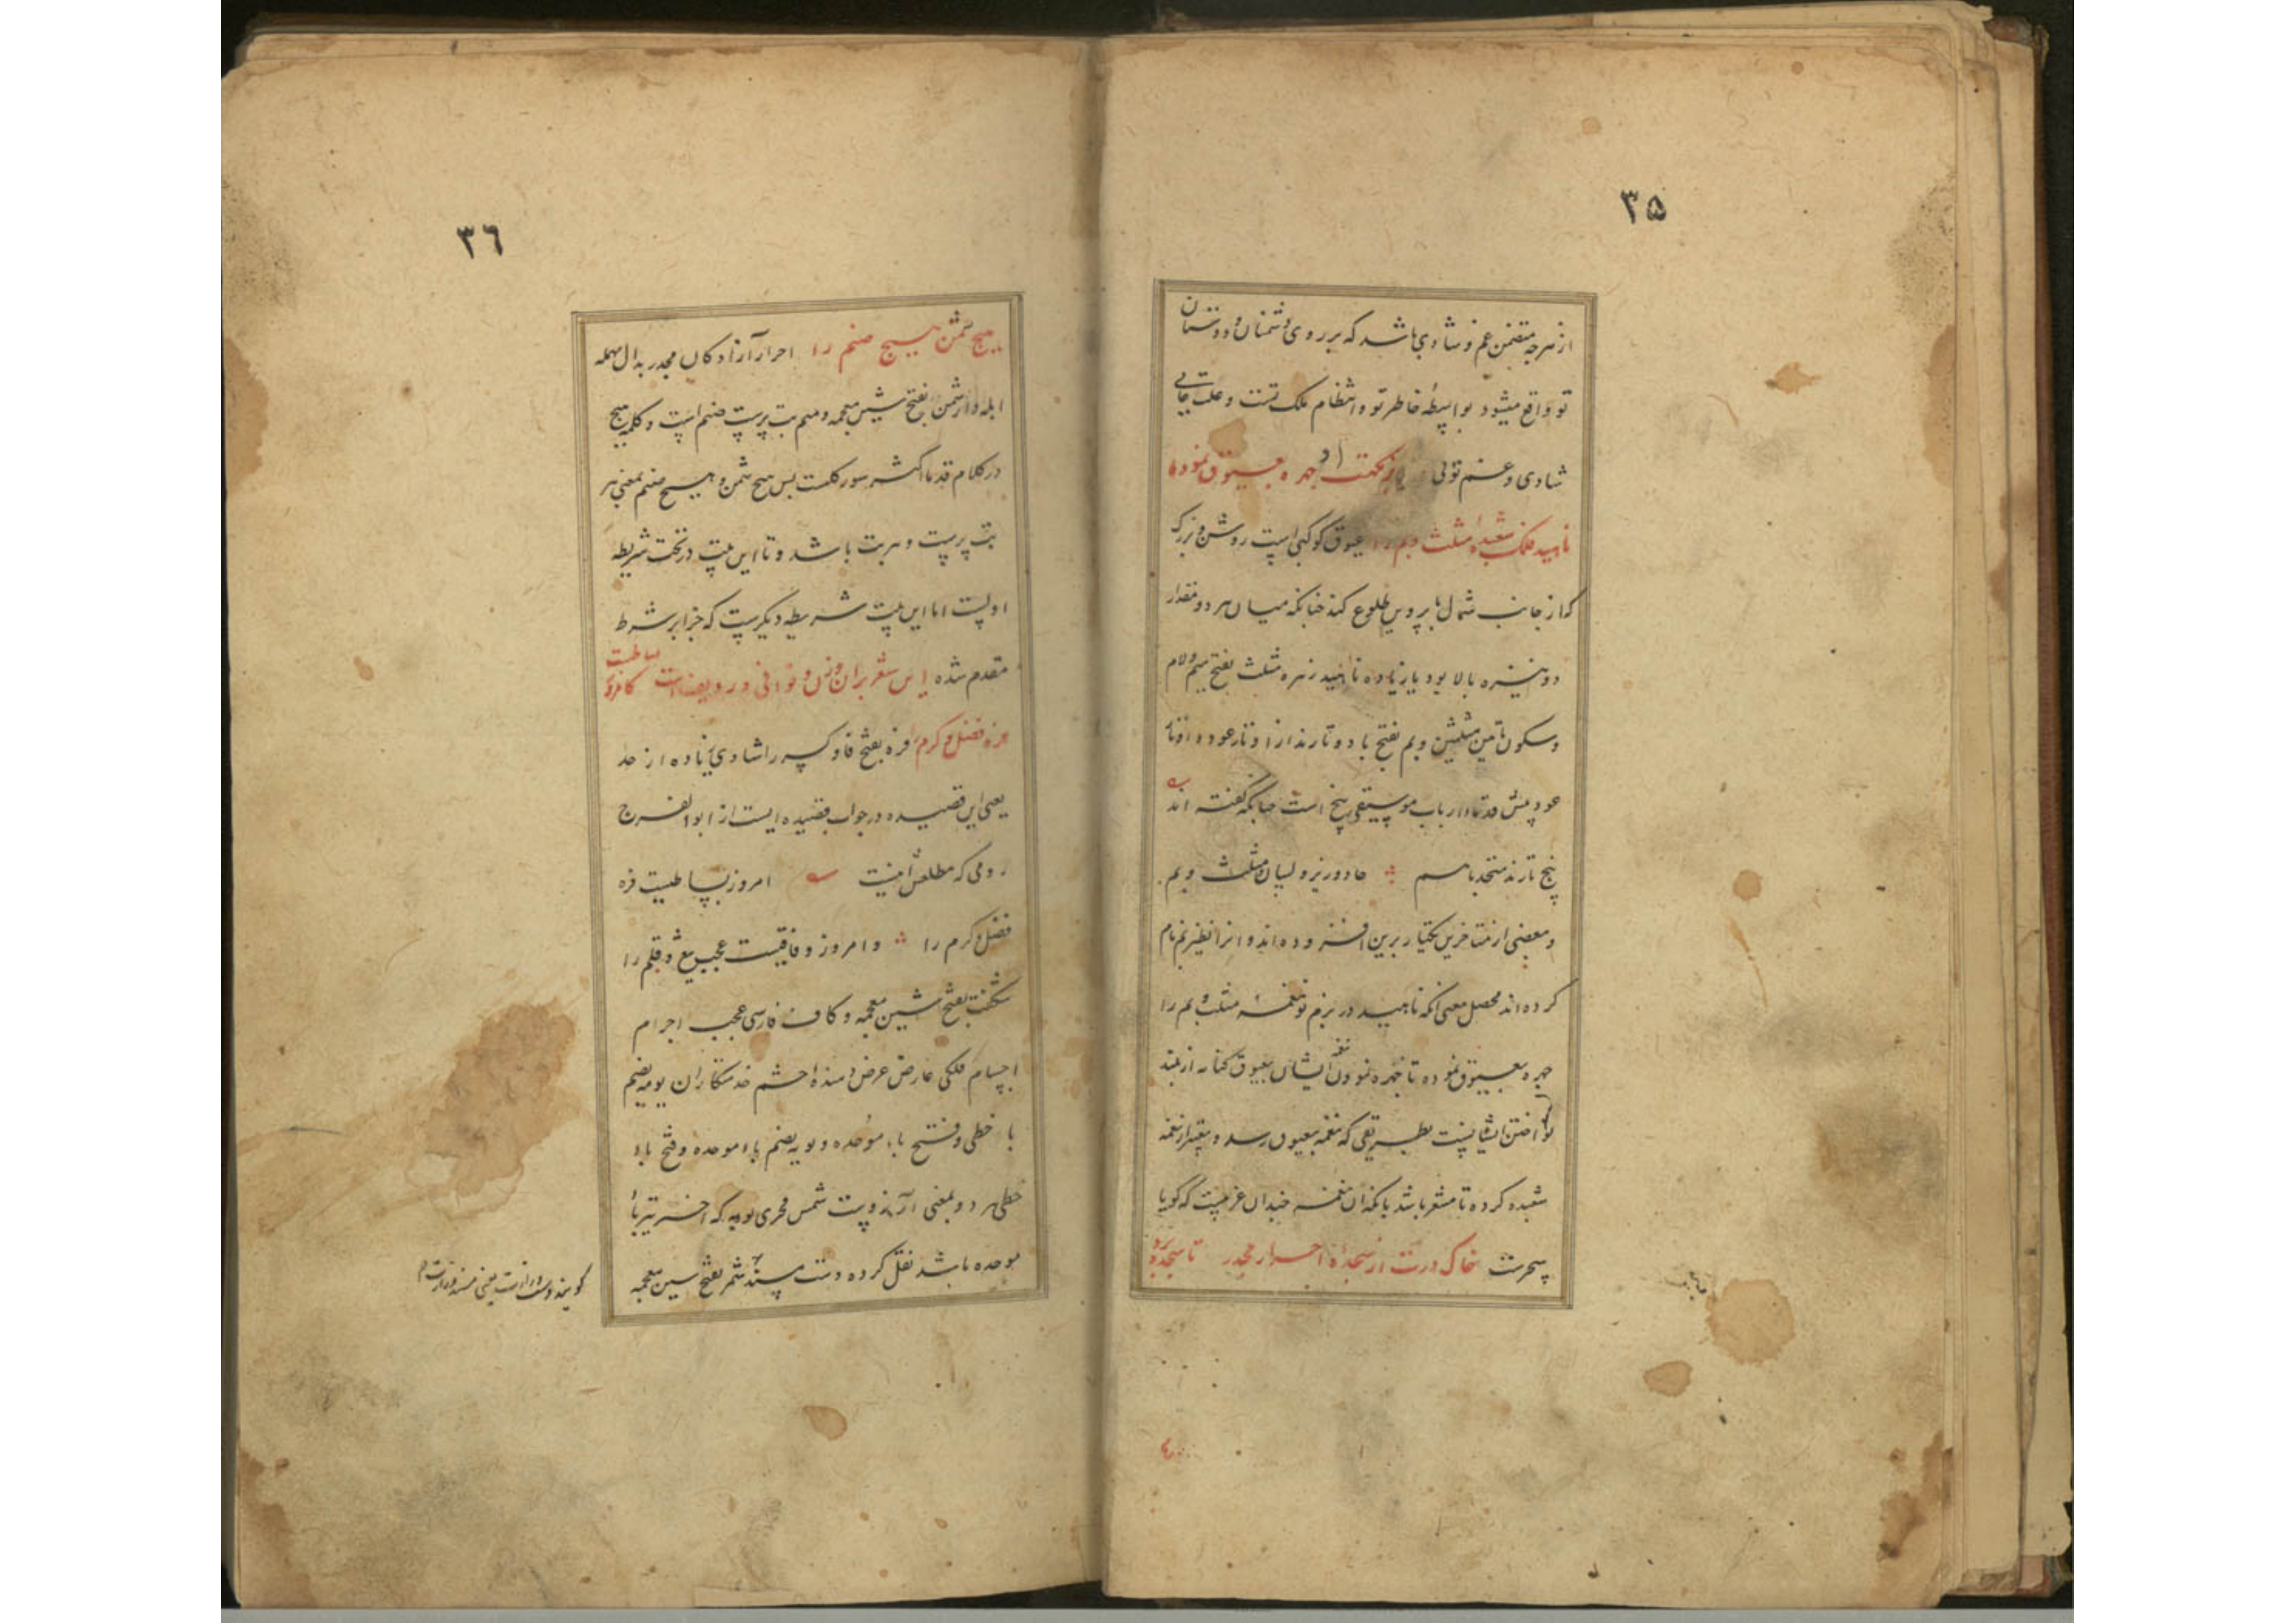 ۳۵
از هرچه متضمن غم و شادی باشد که بر روی دشمنان و دوستان
تو واقع میشود بواسطه خاطر تو و انتظام ملک تست و علت غایی
شادی و غم توئی در بزمگهت چهره بعیوق نموده
ناهید فلک شعبده مثلث و بم را عیوق کوکبی است روشن و بزرگ
که از جانب شمال با پروین طلوع کند چنانکه میان هر دو مقدار
دو نیزه بالا بود یا زیاده ناهید زهره مثلث بفتح میم و لام
و سکون ثائین مثلثین و بم بفتح با دو تارند از اوتار عود و اوتار
عود پیش قدما و ارباب موسیقی پنج است چنانکه گفته اند
پنج تارند متحد با هم حاد و زیر و مثلث و بم
و بعضی از متاخرین یکتار برین افزوده اند و انرا نام
کرده اند محصل معنی آنکه ناهید در بزم تو نغمه مثلث و بم را
چهره بعیوق نموده تا چهره نمودن نغمه ایشان بعیوق کنایه از بلند
نواختن ایشانست بطریقی که نغمه بعیوق رسد و تعبیر از نغمه
شعبده کرده تا مشعر باشد بآنکه آن نغمه چندان غریبست که گویا
سحرست خاک درت از سجده احرار مجدر تا سجده برد
۳۶
هیچ شمن هیچ صنم را احرار آزادگان مجدر بدال مهمله
ابله دار شمن بفتح شین معجمه و میم بت پرست صنم است و کلمه هیچ
در کلام قدما اکثر سور کلیت پس هیچ شمن و هیچ صنم بمعنی هر
بت پرست و هر بت باشد و تا این بیت در تحت شریطه
اولست اما این بیت شریطه دیگریست که جزا بر شرط
مقدم شده این شعر بران وزن و قوافی و رویست کامروز نشاطیست
فره فضل و کرم را فره بفتح فا و کسر را شادی زیاده از حد
یعنی این قصیده در جواب قصیده ایست از ابو الفرج
رونی که مطلعش اینست امروز نشاطیست فره
فضل و کرم را و امروز وفاقیست عجب تیغ و قلم را
شگفت بفتح شین معجمه و کاف فارسی عجب اجرام
اجسام فلکی عارض عرض دهنده حشم خدمتکاران یوبه بضم
یا حطی و فتح باء موحده و بویه بضم باء موحده و فتح یاء
حطی هر دو بمعنی آرزوست شمس فخری بویه که آخر نیز باء
موحده باشد نقل کرده دست مسند شمر بفتح شین معجمه